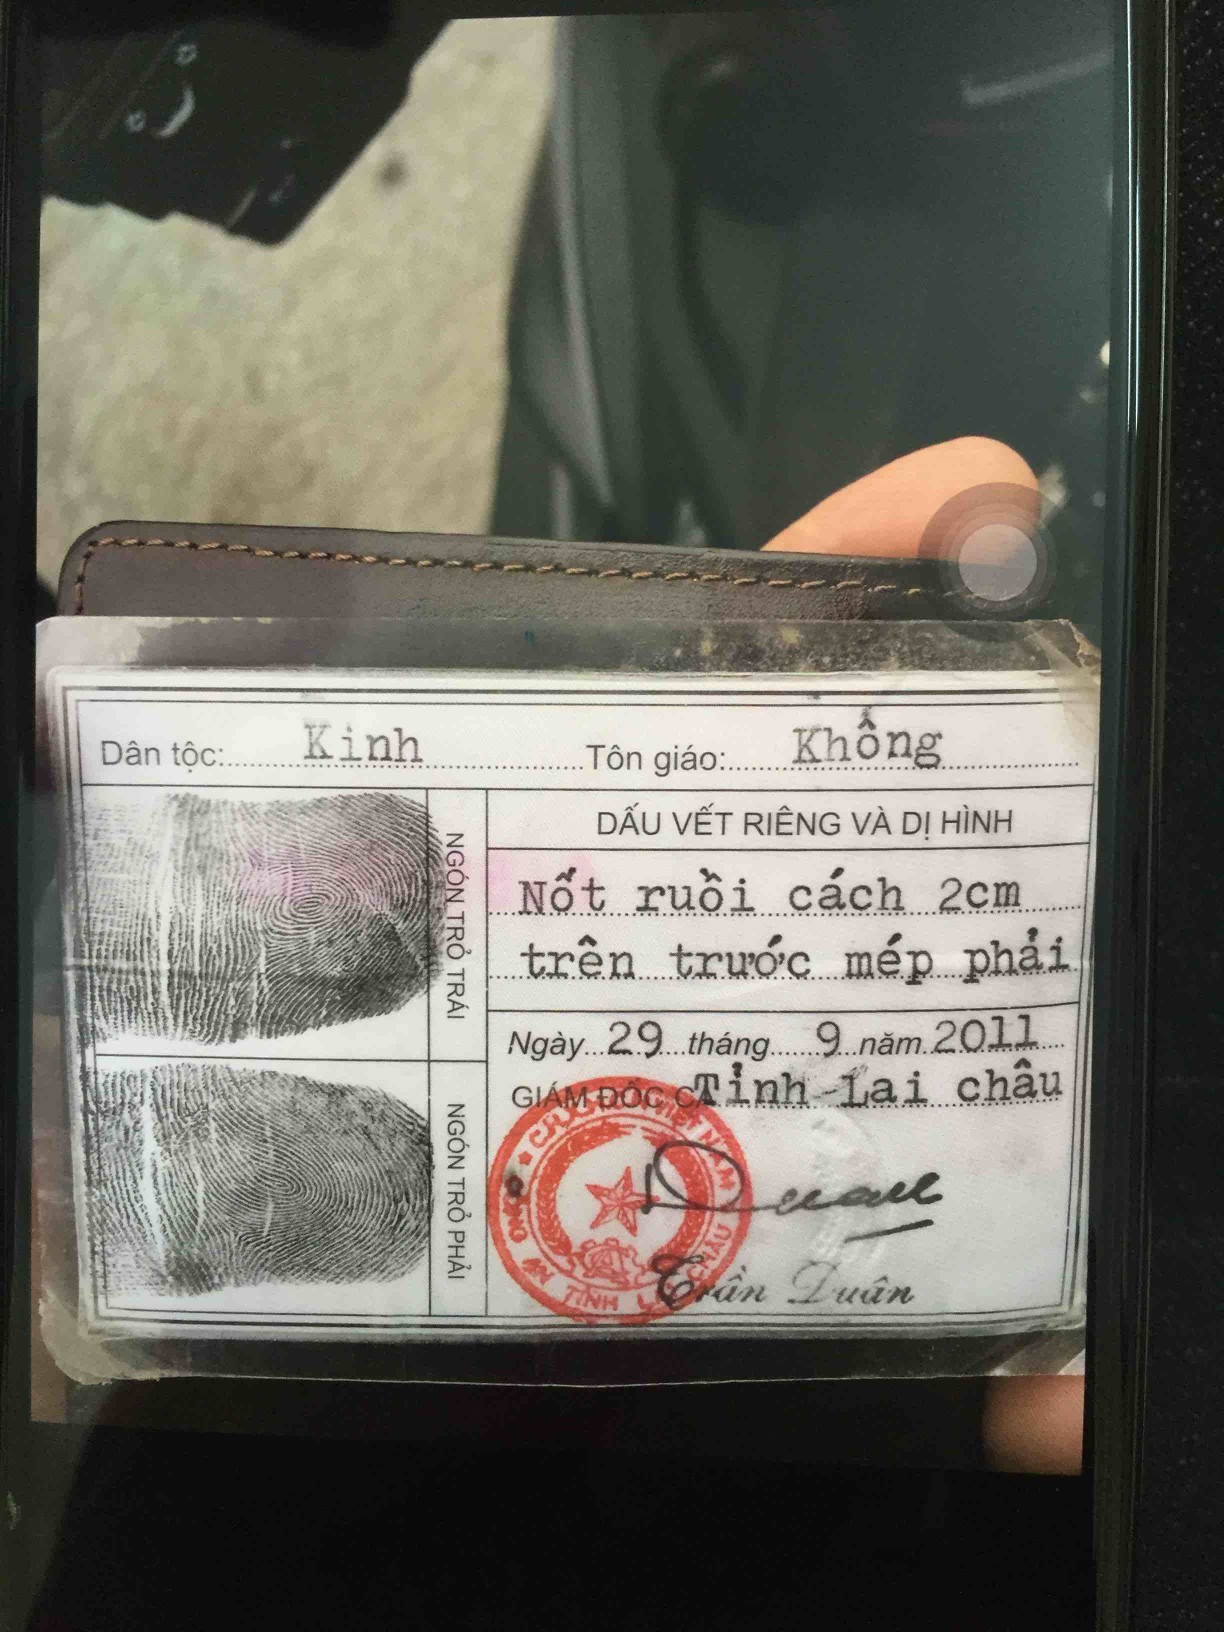 Dân tộc: Kinh Tôn giáo: Không
NGÓN TRỎ TRÁI
DẤU VẾT RIÊNG VÀ DỊ HÌNH
Nốt ruồi cách 2cm
trên trước mép phải
Ngày 29 tháng 9 năm 2011
GIÁM ĐỐC CA Tỉnh Lai châu
NGÓN TRỎ PHẢI
Trần Duân